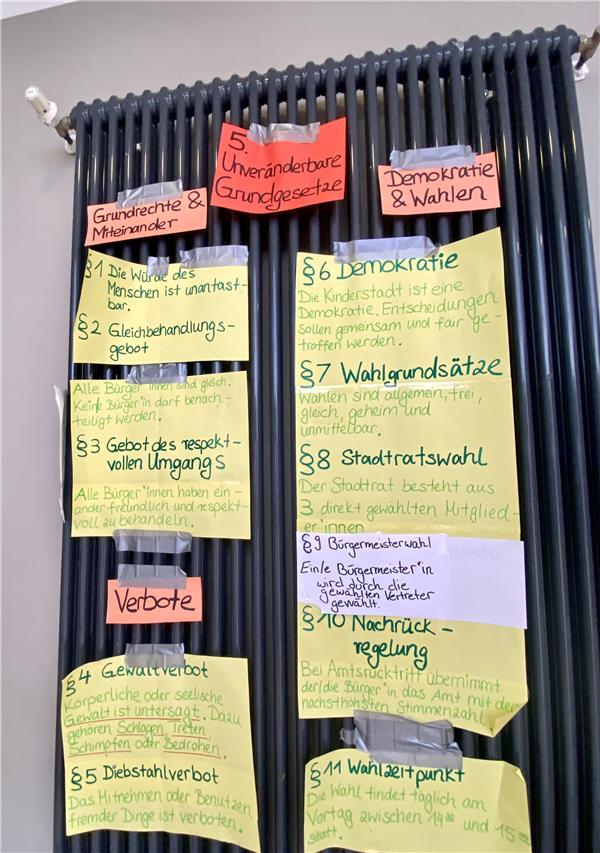 5.
Unveränderbare
Grundgesetze
Grundrechte &
Miteinander
§1 Die Würde des
Menschen ist unantast-
bar.
§2 Gleichbehandlungs-
gebot
Alle Bürger*innen sind gleich.
Kein*e Bürger*in darf benach-
teiligt werden.
§3 Gebot des respekt-
vollen Umgangs
Alle Bürger*innen haben ein-
ander freundlich und respekt-
voll zu behandeln.
Verbote
§4 Gewaltverbot
Körperliche oder seelische
Gewalt ist untersagt. Dazu
gehören Schlagen, Treten,
Schimpfen oder Bedrohen.
§5 Diebstahlverbot
Das Mitnehmen oder Benutzen
fremder Dinge ist verboten.
Demokratie
& Wahlen
§6 Demokratie
Die Kinderstadt ist eine
Demokratie. Entscheidungen
sollen gemeinsam und fair ge-
troffen werden.
§7 Wahlgrundsätze
Wahlen sind allgemein, frei,
gleich, geheim und
unmittelbar.
§8 Stadtratswahl
Der Stadtrat besteht aus
3 direkt gewählten Mitglied-
er*innen
§9 Bürgermeisterwahl
Ein/e Bürgermeister*in
wird durch die
gewählten Vertreter
gewählt.
§10 Nachrück-
regelung
Bei Amtsrücktritt übernimmt
der/die Bürger*in das Amt mit der
nächsthöhsten Stimmenzahl.
§11 Wahlzeitpunkt
Die Wahl findet täglich am
Vortag zwischen 14 und 15
statt.